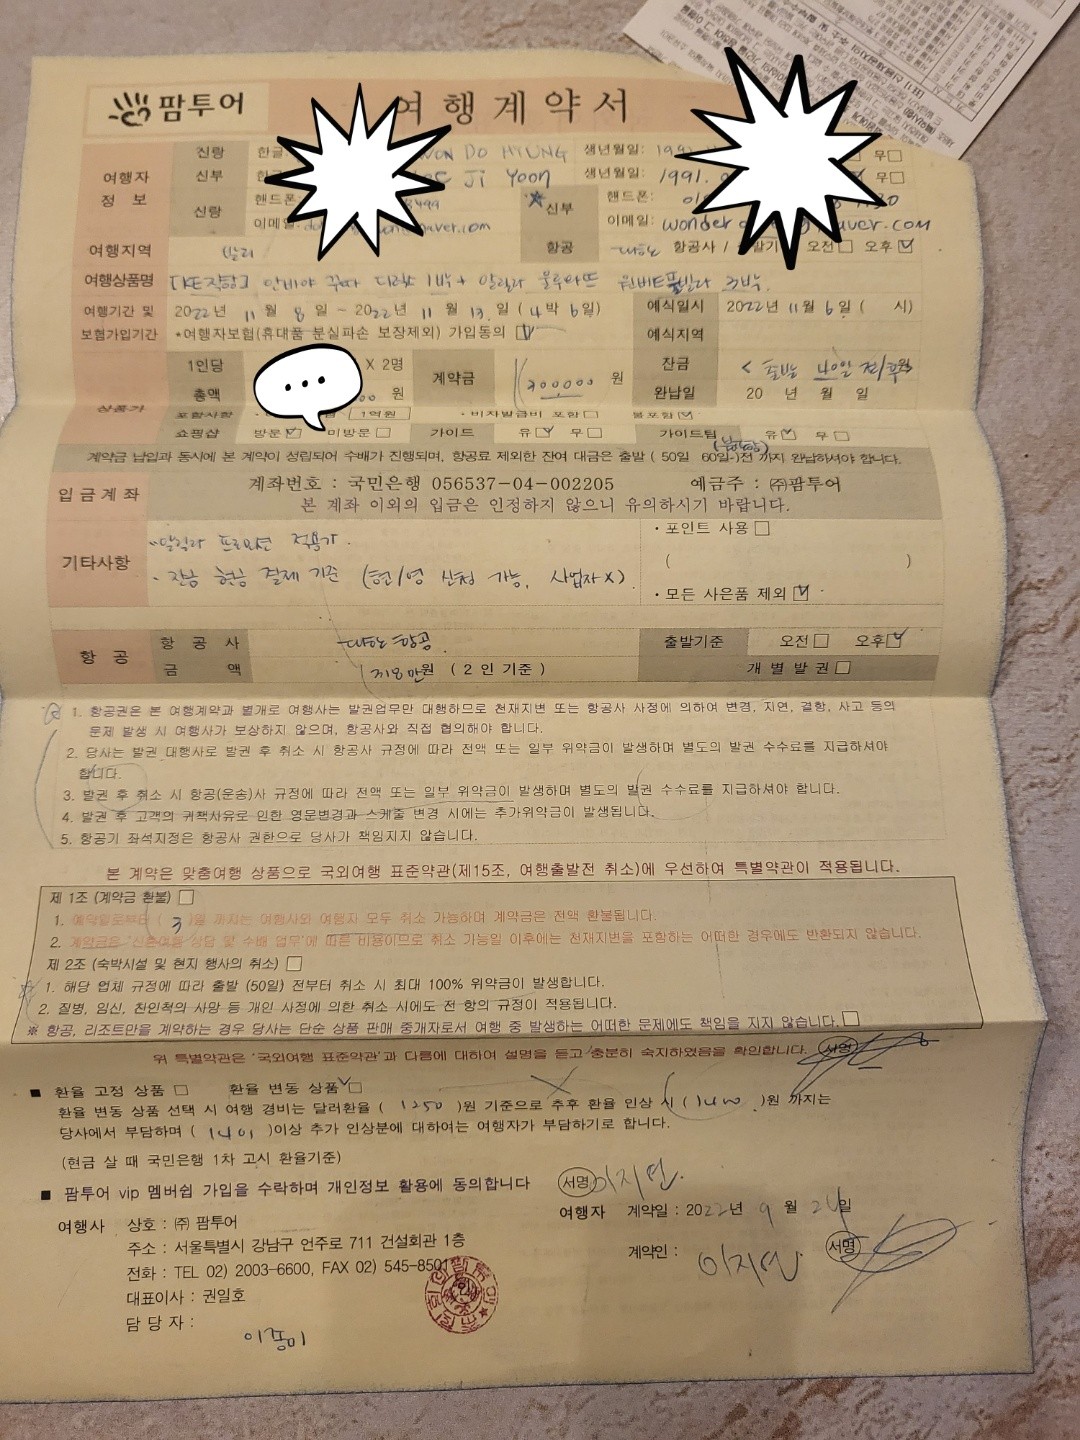 팜투어
여행계약서
여행자 정보
신랑 한글: WON DO HYUNG 생년월일: 199 무□
신부 한글 JI YOON 생년월일: 1991. 무□
신랑 핸드폰: 8499 신부 핸드폰: 01
이메일: naver.com 이메일: wonder naver.com
여행지역 발리 항공 대한 항공사 / 출발기 오전□ 오후☑
여행상품명 [KE직항] 1박 + 알릴라 울루와뜨 원베드풀빌라 3박
여행기간 및 보험가입기간 2022년 11월 8일 ~ 2022년 11월 13일 (4박 6일) 예식일시 2022년 11월 6일 ( 시)
*여행자보험(휴대품 분실파손 보장제외) 가입동의 ☑ 예식지역
상품가 1인당 X 2명 계약금 원 잔금 완납일 < 출발 전/후
총액 원 20 년 월 일
포함사항 1억원 • 비자발급비 포함□ 불포함☑
쇼핑샵 방문☑ 미방문□ 가이드 유☑ 무□ 가이드팁 유☑ 무□
(불포함)
계약금 납입과 동시에 본 계약이 성립되어 수배가 진행되며, 항공료 제외한 잔여 대금은 출발 ( 50일 60일 )전 까지 완납하셔야 합니다.
입금계좌 계좌번호 : 국민은행 056537-04-002205 예금주 : ㈜팜투어
본 계좌 이외의 입금은 인정하지 않으니 유의하시기 바랍니다.
기타사항 - 알릴라 프로모션 적용가.
- 잔금 현금 결제 기준 (현/영 신청 가능, 사업자X).
• 포인트 사용 □
( )
• 모든 사은품 제외 ☑
항공 항공사 대한항공 출발기준 오전□ 오후☑
금액 318만원 ( 2인 기준 ) 개별발권□
1. 항공권은 본 여행계약과 별개로 여행사는 발권업무만 대행하므로 천재지변 또는 항공사 사정에 의하여 변경, 지연, 결항, 사고 등의
문제 발생 시 여행사가 보상하지 않으며, 항공사와 직접 협의해야 합니다.
2. 당사는 발권 대행사로 발권 후 취소 시 항공사 규정에 따라 전액 또는 일부 위약금이 발생하며 별도의 발권 수수료를 지급하셔야
합니다.
3. 발권 후 취소 시 항공(운송)사 규정에 따라 전액 또는 일부 위약금이 발생하며 별도의 발권 수수료를 지급하셔야 합니다.
4. 발권 후 고객의 귀책사유로 인한 영문변경과 스케줄 변경 시에는 추가위약금이 발생됩니다.
5. 항공기 좌석지정은 항공사 권한으로 당사가 책임지지 않습니다.
본 계약은 맞춤여행 상품으로 국외여행 표준약관(제15조, 여행출발전 취소)에 우선하여 특별약관이 적용됩니다.
제 1조 (계약금 환불) □
1. 예약일로부터 ( 3 )일 까지는 여행사와 여행자 모두 취소 가능하며 계약금은 전액 환불됩니다.
2. 계약금은 '신혼여행 상담 및 수배 업무'에 따른 비용이므로 취소 가능일 이후에는 천재지변을 포함하는 어떠한 경우에도 반환되지 않습니다.
제 2조 (숙박시설 및 현지 행사의 취소) □
1. 해당 업체 규정에 따라 출발 (50일) 전부터 취소 시 최대 100% 위약금이 발생합니다.
2. 질병, 임신, 친인척의 사망 등 개인 사정에 의한 취소 시에도 전 항의 규정이 적용됩니다.
※ 항공, 리조트만을 계약하는 경우 당사는 단순 상품 판매 중개자로서 여행 중 발생하는 어떠한 문제에도 책임을 지지 않습니다. □
위 특별약관은 '국외여행 표준약관'과 다름에 대하여 설명을 듣고 충분히 숙지하였음을 확인합니다. 서명
■ 환율 고정 상품 □ 환율 변동 상품 ☑
환율 변동 상품 선택 시 여행 경비는 달러환율 ( 1250 )원 기준으로 추후 환율 인상 시 ( 1400 )원 까지는
당사에서 부담하며 ( 1401 )이상 추가 인상분에 대하여는 여행자가 부담하기로 합니다.
(현금 살 때 국민은행 1차 고시 환율기준)
■ 팜투어 vip 멤버쉽 가입을 수락하며 개인정보 활용에 동의합니다 서명 이지연
여행사 상호 : ㈜ 팜투어
주소 : 서울특별시 강남구 언주로 711 건설회관 1층
전화 : TEL 02) 2003-6600, FAX 02) 545-8501
대표이사 : 권일호
담당자 :
여행자 계약일 : 2022년 9월 24일
계약인 : 이지연 서명